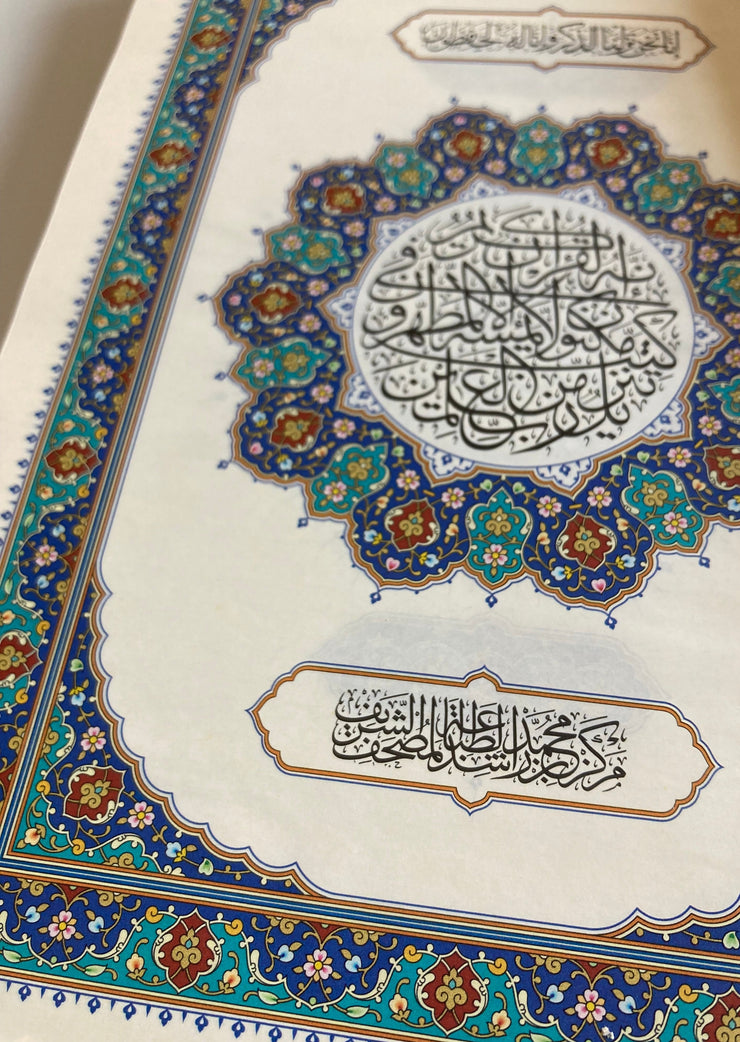 إنا نحن نزلنا الذكر وإنا له لحافظون
إنه لقرآن كريم في
كتب مكنون لا يمسه إلا المطهرون
تنزيل من رب العلمين
مركز محمد بن راشد لطباعة المصحف الشريف